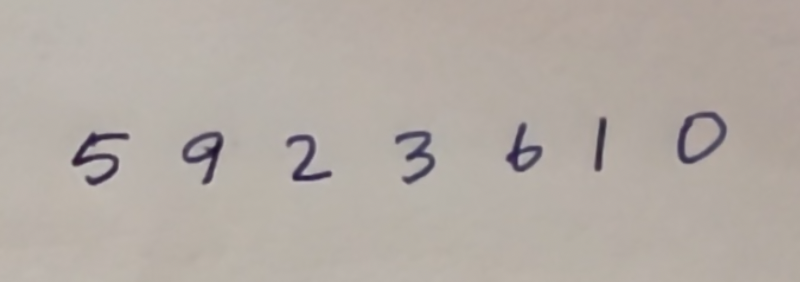 5 9 2 3 6 1 0